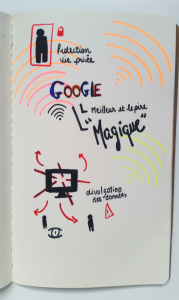 Protection
vie privée
GOOGLE
Meilleur et le pire
"Magique"
divulgation
des données